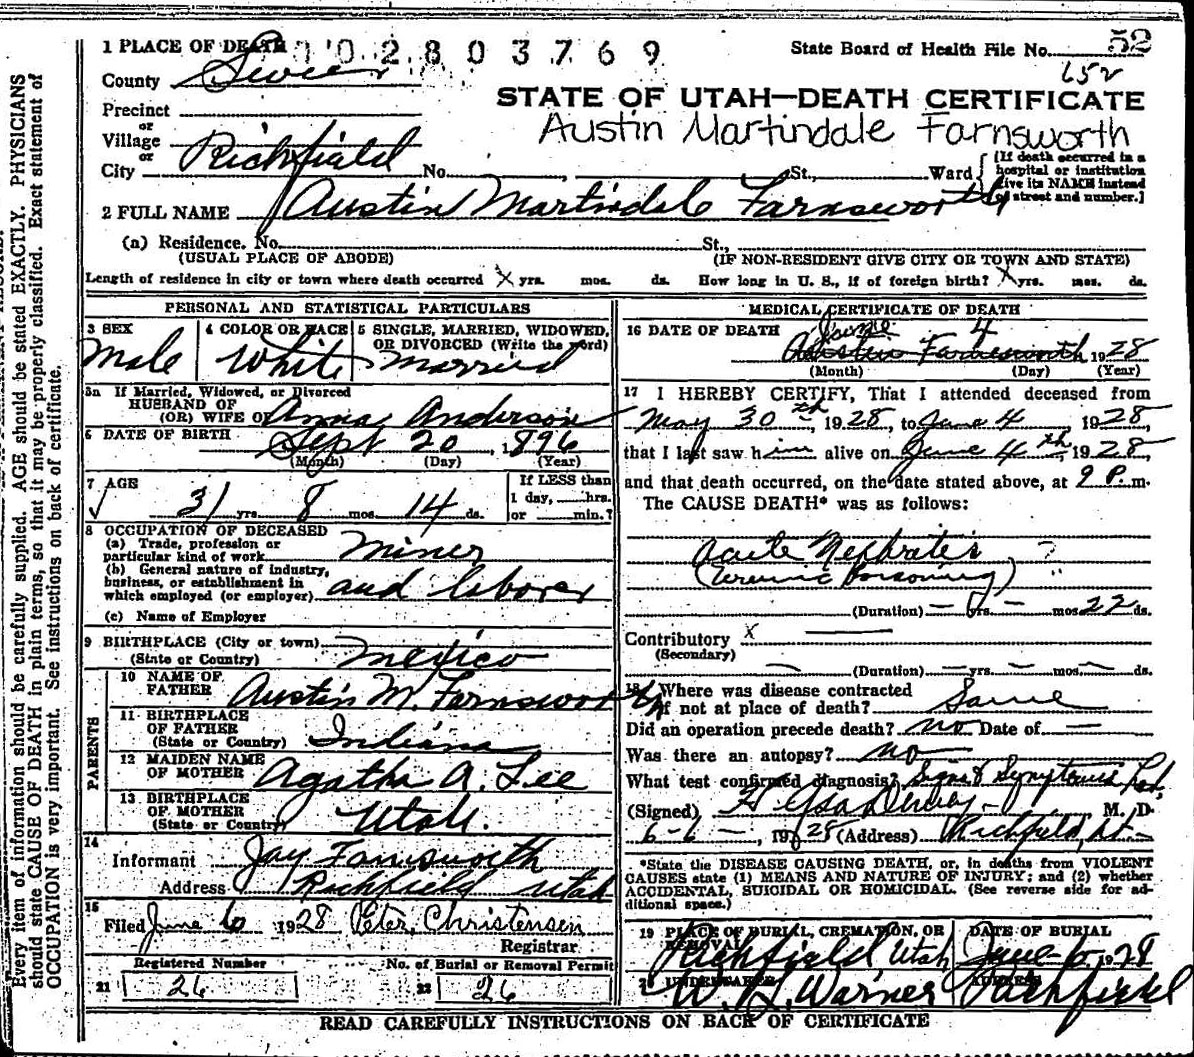 1 PLACE OF DEATH
02803769
State Board of Health File No. 52
County Sevier
652
STATE OF UTAH—DEATH CERTIFICATE
Precinct
or
Village
Austin Martindale Farnsworth
or
City Richfield No. St., Ward
[If death occurred in a hospital or institution give its NAME instead of street and number.]
2 FULL NAME Austin Martindale Farnsworth
(a) Residence. No. St.,
(USUAL PLACE OF ABODE) (IF NON-RESIDENT GIVE CITY OR TOWN AND STATE)
Length of residence in city or town where death occurred X yrs. mos. ds. How long in U. S., if of foreign birth? X yrs. mos. ds.
PERSONAL AND STATISTICAL PARTICULARS
3 SEX
Male
4 COLOR OR RACE
White
5 SINGLE, MARRIED, WIDOWED,
OR DIVORCED (Write the word)
Married
5a If Married, Widowed, or Divorced
HUSBAND OF
(OR) WIFE OF Anna Anderson
6 DATE OF BIRTH Sept 20, 1896
(Month) (Day) (Year)
7 AGE
31 yrs. 8 mos. 14 ds.
If LESS than
1 day, hrs.
or min.?
8 OCCUPATION OF DECEASED
(a) Trade, profession or
particular kind of work miner
(b) General nature of industry,
business, or establishment in
which employed (or employer) and laborer
(c) Name of Employer
9 BIRTHPLACE (City or town)
(State or Country) Mexico
PARENTS
10 NAME OF
FATHER Austin M. Farnsworth
11 BIRTHPLACE
OF FATHER
(State or Country) Indiana
12 MAIDEN NAME
OF MOTHER Agatha A. Lee
13 BIRTHPLACE
OF MOTHER
(State or Country) Utah.
14
Informant Jay Farnsworth
Address Richfield Utah
15
Filed June 6 1928 Peter Christensen
Registrar
Registered Number No. of Burial or Removal Permit
21 26 22 26
MEDICAL CERTIFICATE OF DEATH
16 DATE OF DEATH June 4
Austin Farnsworth 1928
(Month) (Day) (Year)
17 I HEREBY CERTIFY, That I attended deceased from
May 30th, 1928, to June 4 1928,
that I last saw him alive on June 4th, 1928,
and that death occurred, on the date stated above, at 9 P.m.
The CAUSE DEATH* was as follows:
Acute Nephritis ?
(Uremic Poisoning)
(Duration) — yrs. — mos. 22 ds.
Contributory X
(Secondary)
— (Duration) — yrs. — mos. — ds.
18 Where was disease contracted
if not at place of death? Same
Did an operation precede death? no Date of —
Was there an autopsy? no
What test confirmed diagnosis? Signs & Symptoms
(Signed) M. D.
6-6-, 1928 (Address) Richfield, Ut
*State the DISEASE CAUSING DEATH, or, in deaths from VIOLENT
CAUSES state (1) MEANS AND NATURE OF INJURY; and (2) whether
ACCIDENTAL, SUICIDAL OR HOMICIDAL. (See reverse side for ad-
ditional space.)
19 PLACE OF BURIAL, CREMATION, OR
REMOVAL
Richfield, Utah
DATE OF BURIAL
June 6 1928
20 UNDERTAKER
W. H. Warner
ADDRESS
Richfield
READ CAREFULLY INSTRUCTIONS ON BACK OF CERTIFICATE
Every item of information should be carefully supplied. AGE should be stated EXACTLY. PHYSICIANS
should state CAUSE OF DEATH in plain terms, so that it may be properly classified. Exact statement of
OCCUPATION is very important. See instructions on back of certificate.